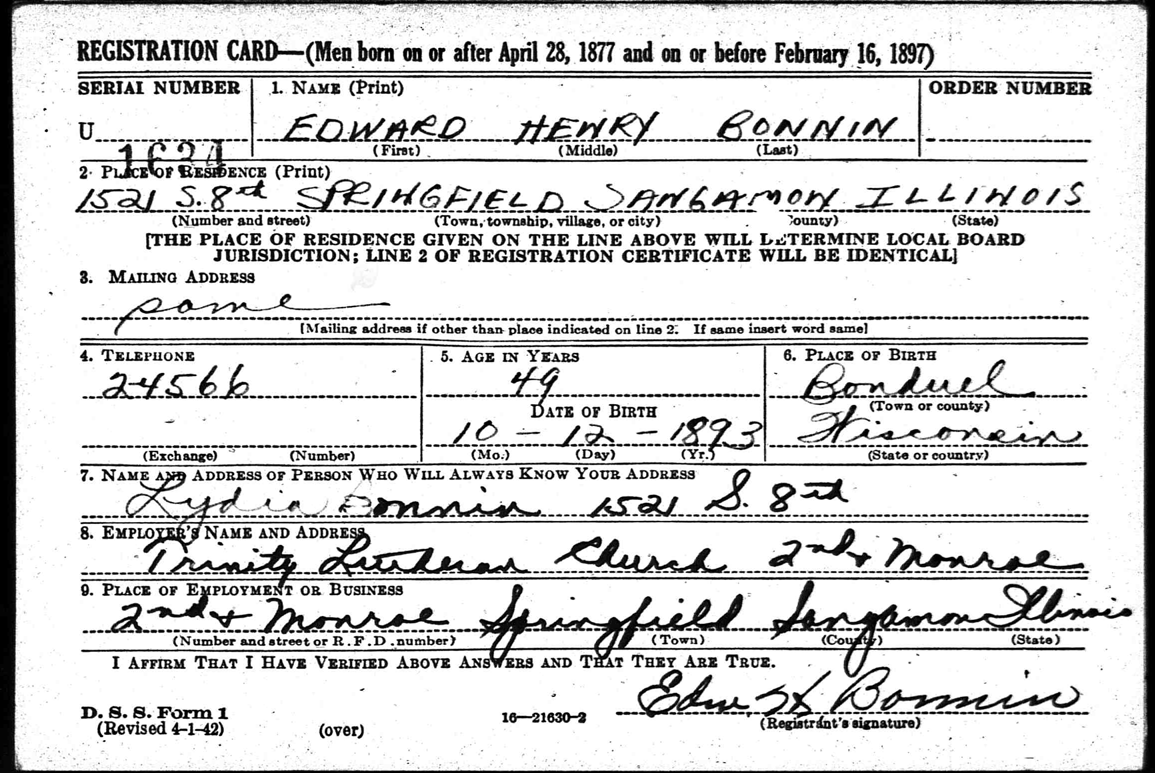 REGISTRATION CARD—(Men born on or after April 28, 1877 and on or before February 16, 1897)
SERIAL NUMBER 1. NAME (Print) ORDER NUMBER
U 1634 EDWARD HENRY BONNIN
(First) (Middle) (Last)
2. PLACE OF RESIDENCE (Print)
1521 S. 8th SPRINGFIELD SANGAMON ILLINOIS
(Number and street) (Town, township, village, or city) (County) (State)
[THE PLACE OF RESIDENCE GIVEN ON THE LINE ABOVE WILL DETERMINE LOCAL BOARD
JURISDICTION; LINE 2 OF REGISTRATION CERTIFICATE WILL BE IDENTICAL]
3. MAILING ADDRESS
same
[Mailing address if other than place indicated on line 2. If same insert word same]
4. TELEPHONE 5. AGE IN YEARS 6. PLACE OF BIRTH
24566 49 Bonduel
DATE OF BIRTH (Town or county)
10 - 12 - 1893 Wisconsin
(Exchange) (Number) (Mo.) (Day) (Yr.) (State or country)
7. NAME AND ADDRESS OF PERSON WHO WILL ALWAYS KNOW YOUR ADDRESS
Lydia Bonnin 1521 S. 8th
8. EMPLOYER'S NAME AND ADDRESS
Trinity Lutheran Church 2nd & Monroe
9. PLACE OF EMPLOYMENT OR BUSINESS
2nd & Monroe Springfield Sangamon Illinois
(Number and street or R. F. D. number) (Town) (County) (State)
I AFFIRM THAT I HAVE VERIFIED ABOVE ANSWERS AND THAT THEY ARE TRUE.
Edw H Bonnin
D. S. S. Form 1
(Revised 4-1-42) (over) 16—21630-2 (Registrant's signature)